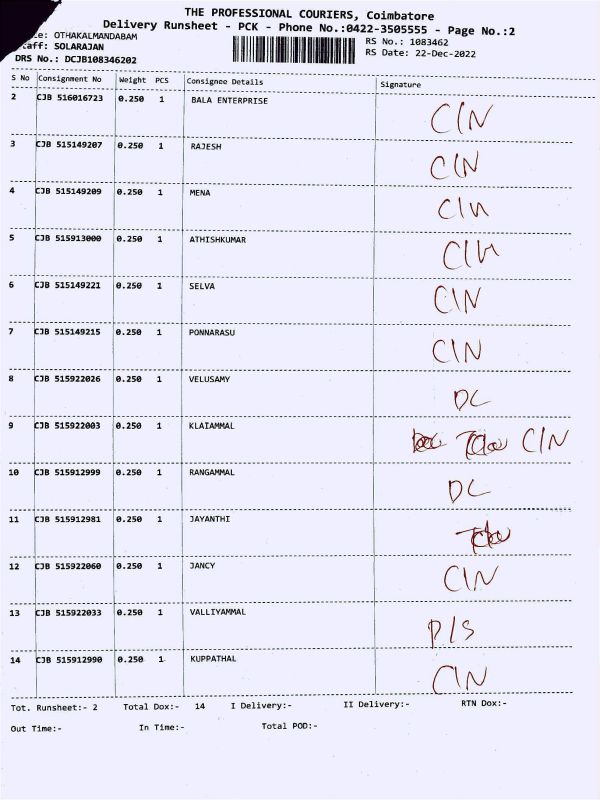 THE PROFESSIONAL COURIERS, Coimbatore
Delivery Runsheet - PCK - Phone No.:0422-3505555 - Page No.:2
OTHAKALMANDABAM
RS No.: 1083462
SOLARAJAN
RS Date: 22-Dec-2022
DRS No.: DCJB108346202
S No Consignment No Weight PCS Consignee Details Signature
2 CJB 516016723 0.250 1 BALA ENTERPRISE C/N
3 CJB 515149207 0.250 1 RAJESH C/N
4 CJB 515149209 0.250 1 MENA C/N
5 CJB 515913000 0.250 1 ATHISHKUMAR C/N
6 CJB 515149221 0.250 1 SELVA C/N
7 CJB 515149215 0.250 1 PONNARASU C/N
8 CJB 515922026 0.250 1 VELUSAMY DC
9 CJB 515922003 0.250 1 KLAIAMMAL C/N
10 CJB 515912999 0.250 1 RANGAMMAL DC
11 CJB 515912981 0.250 1 JAYANTHI
12 CJB 515922060 0.250 1 JANCY C/N
13 CJB 515922033 0.250 1 VALLIYAMMAL P/S
14 CJB 515912990 0.250 1 KUPPATHAL C/N
Tot. Runsheet:- 2 Total Dox:- 14 I Delivery:- II Delivery:- RTN Dox:-
Out Time:- In Time:- Total POD:-